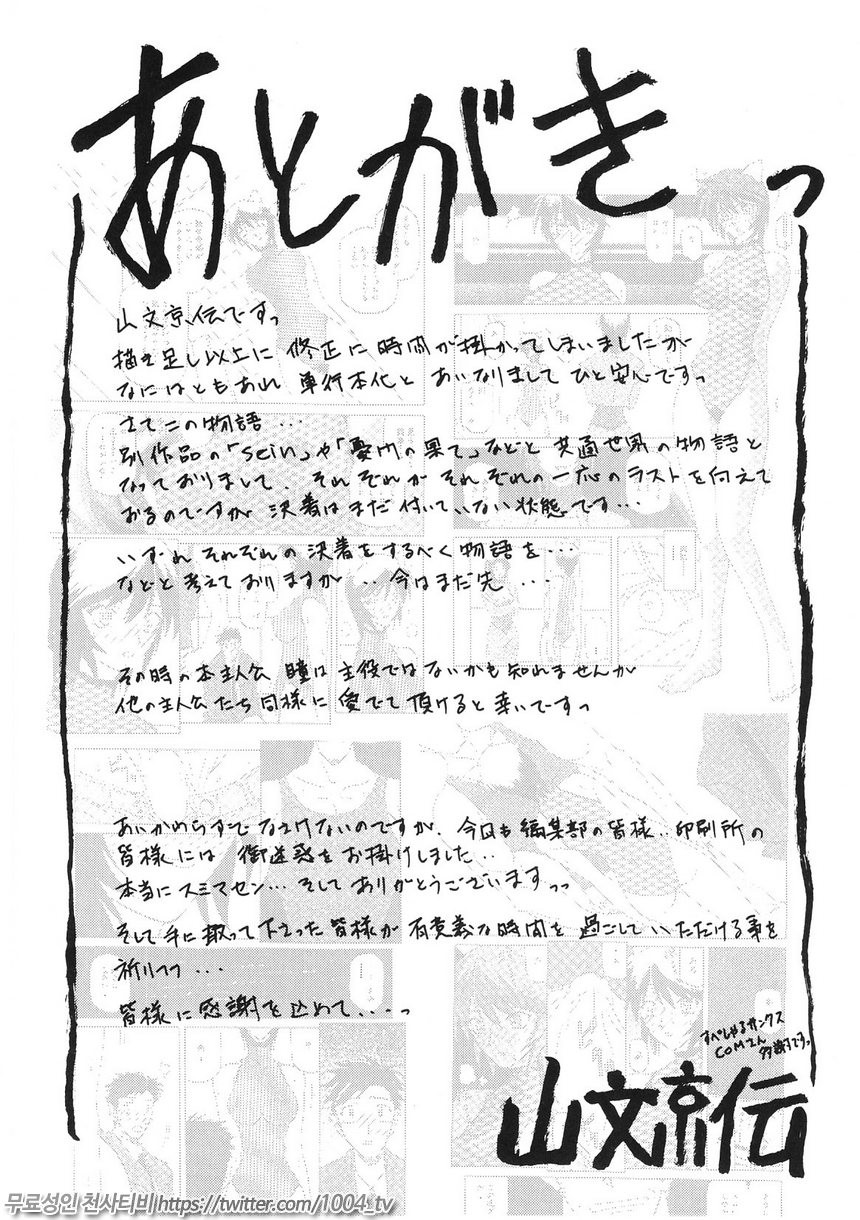 あとがきっ
山文京伝ですっ
描き足し以上に 修正に時間が掛かってしまいましたが
なにはともあれ 単行本化と あいなりまして ひと安心ですっ
さてこの物語…
別作品の「Sein」や「憂門の果て」などと 共通世界の物語と
なっておりまして、それぞれが それぞれの一応のラストを向えて
おるのですが 決着はまだ付いていない状態です…
いずれ それぞれの 決着をするべく物語を…
などと考えておりますが ‥今はまだ先 …
その時の本主人公 瞳は主役ではないかも知れませんが
他の主人公たち同様に 愛でて頂けると 幸いですっ
あいかわらずで なさけないのですが、今回も編集部の皆様‥印刷所の
皆様には 御迷惑をお掛けしました‥
本当にスミマセン… そして ありがとうございますっっ
そして手に取って下さった 皆様が 有意義な時間を 過ごしていただける事を
祈りつつ …
皆様に感謝を込めて‥‥っ
すぺしゃるサンクス
COMさん
多謝ですっ
山文京伝
무료성인 천사티비 https://twitter.com/1004_tv